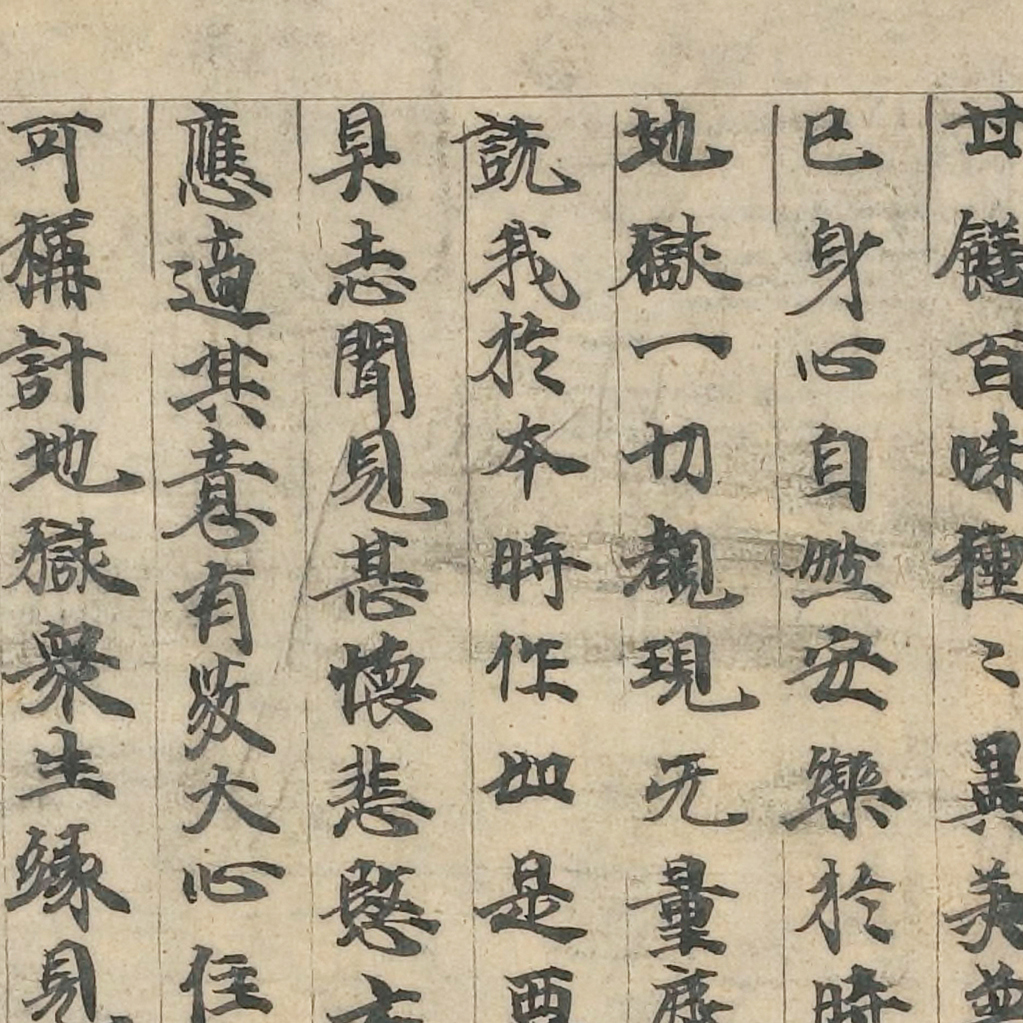 甘饍百味種〻異美並
已身心自然安樂於時
地獄一切覩現无量
説我於本時作如是
具志聞見甚懷悲愍
應適其意有發大心住
可稱計地獄衆生緣見